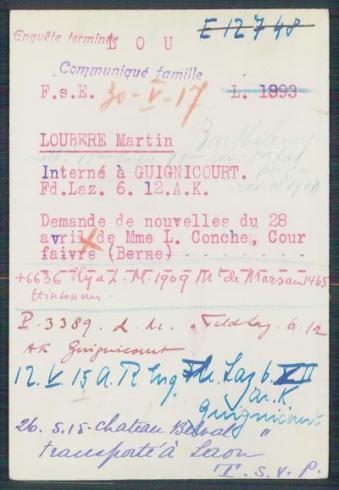 Enquête terminée
E 12748
L O U
Communiqué famille
F.s.E. 30-V-17 L. 1893
LOUBERE Martin
Barthélemy
Interné à GUIGNICOURT.
Fd.Laz. 6. 12.A.K.
Demande de nouvelles du 28
avril de Mme L. Conche, Cour
faivre (Berne)
+6636 L. M. 1909 Mt de Marsan 1465
Inconnu
P. 3389. L. M. Feldlaz. 6. 12
AK Guignicourt
12. V. 15 Laz 6 XII
A.K
Guignicourt
26. 5. 15 - Chateau Belval "
transporté à Laon
T. S. V. P.